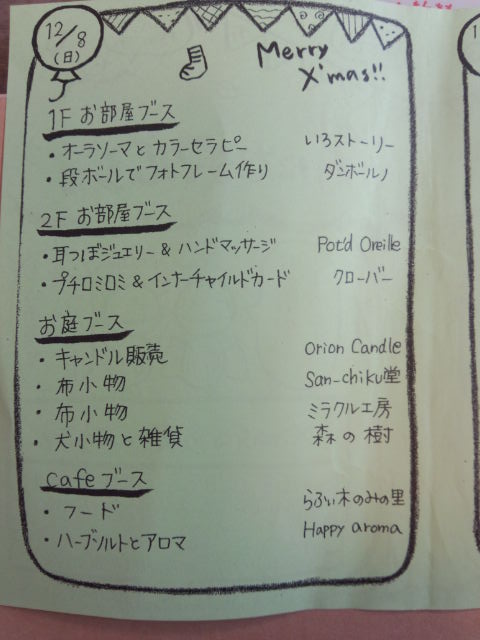 12/8
(日)
Merry
X'mas!!
1F お部屋ブース
・オーラソーマと カラーセラピー いろストーリー
・段ボールでフォトフレーム作り ダンボールノ
2F お部屋ブース
・耳つぼジュエリー & ハンドマッサージ Pot'd Oreille
・プチロミロミ & インナーチャイルドカード クローバー
お庭ブース
・キャンドル販売 Orion Candle
・布小物 San-chiku堂
・布小物 ミラクル工房
・犬小物と雑貨 森の樹
cafeブース
・フード らふぃ木のみの里
・ハーブソルトとアロマ Happy aroma